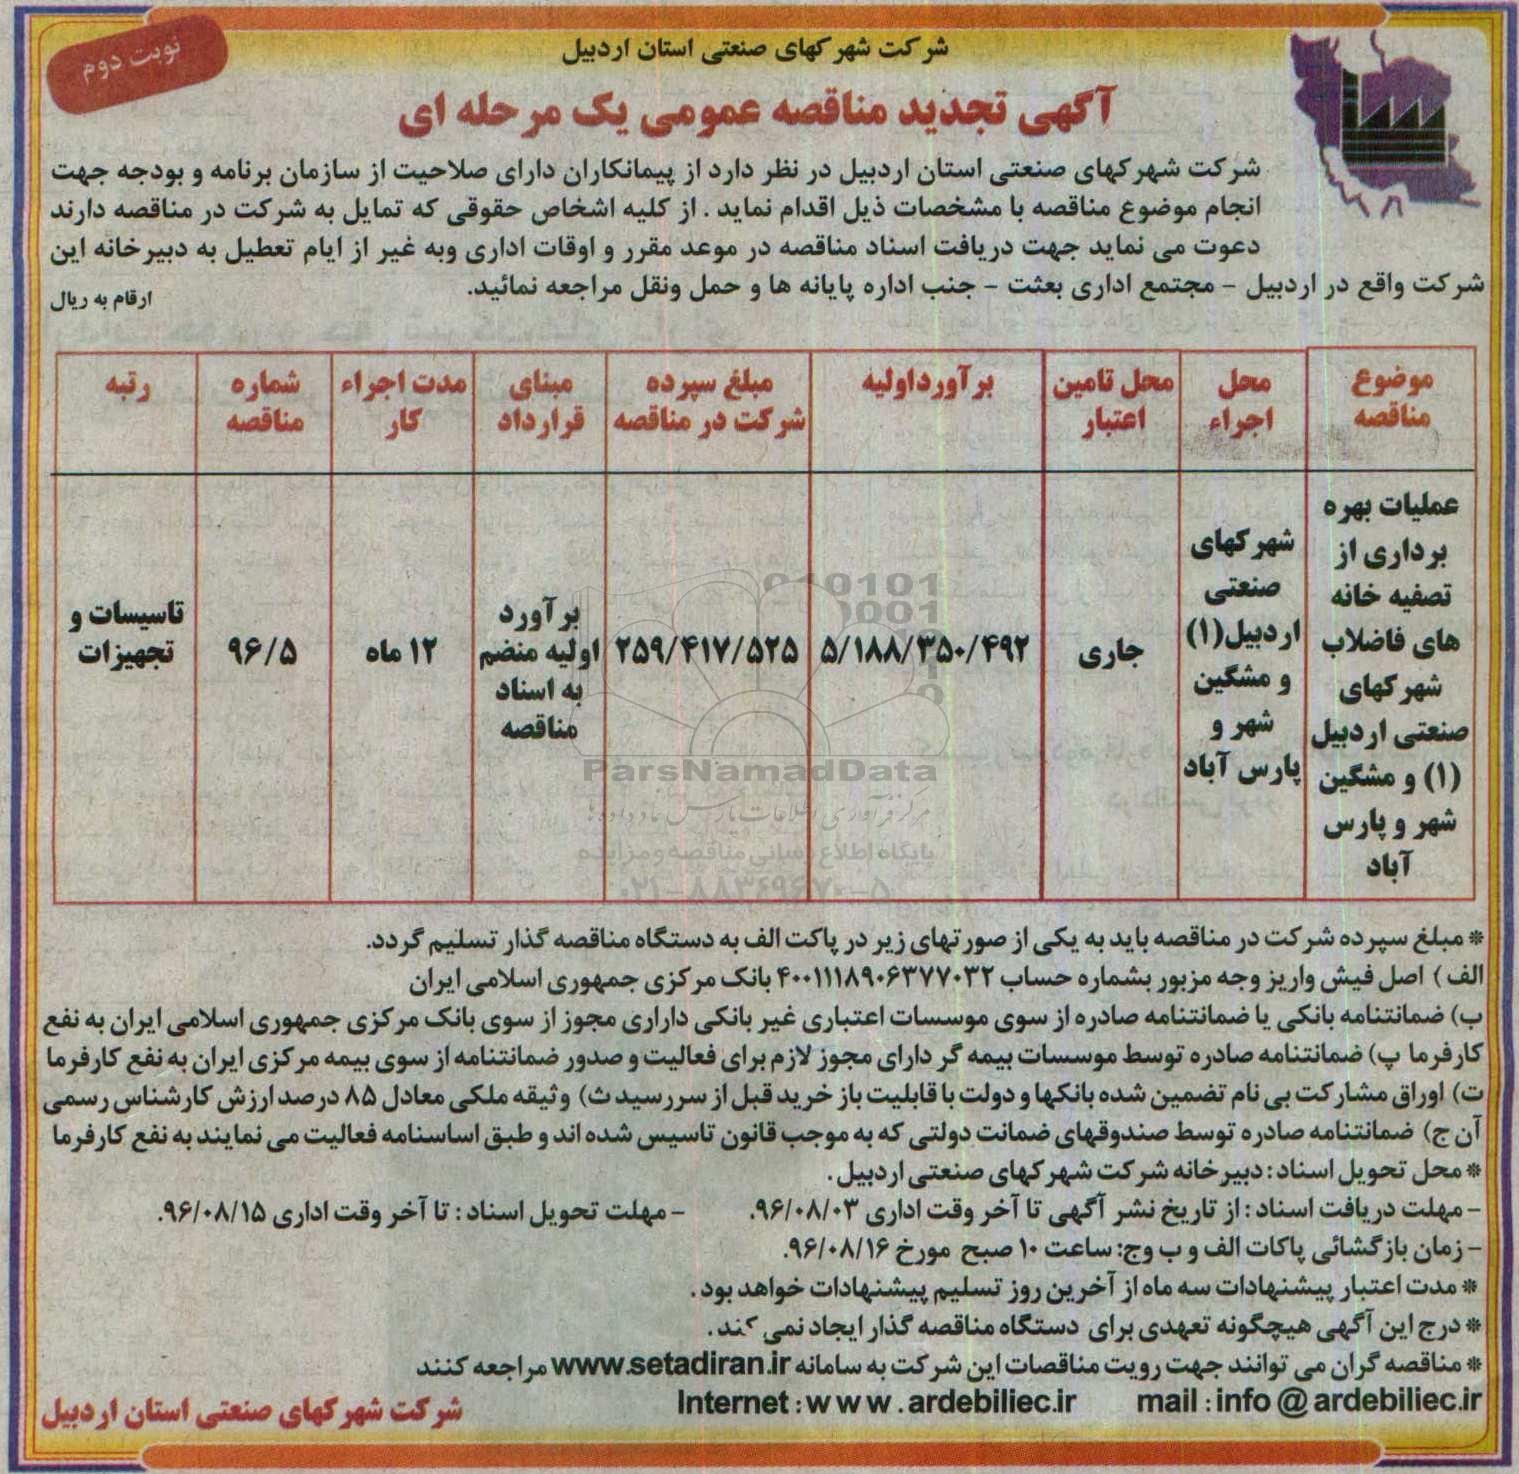 نوبت دوم
شرکت شهرکهای صنعتی استان اردبیل
آگهی تجدید مناقصه عمومی یک مرحله ای
شرکت شهرکهای صنعتی استان اردبیل در نظر دارد از پیمانکاران دارای صلاحیت از سازمان برنامه و بودجه جهت
انجام موضوع مناقصه با مشخصات ذیل اقدام نماید . از کلیه اشخاص حقوقی که تمایل به شرکت در مناقصه دارند
دعوت می نماید جهت دریافت اسناد مناقصه در موعد مقرر و اوقات اداری وبه غیر از ایام تعطیل به دبیرخانه این
شرکت واقع در اردبیل - مجتمع اداری بعثت - جنب اداره پایانه ها و حمل ونقل مراجعه نمائید.
ارقام به ریال
موضوع مناقصه
محل اجراء
محل تامین اعتبار
برآورداولیه
مبلغ سپرده شرکت در مناقصه
مبنای قرارداد
مدت اجراء کار
شماره مناقصه
رتبه
عملیات بهره
برداری از
تصفیه خانه
های فاضلاب
شهرکهای
صنعتی اردبیل
(۱) و مشگین
شهر و پارس
آباد
شهرکهای
صنعتی
اردبیل(۱)
و مشگین
شهر و
پارس آباد
جاری
۵/۱۸۸/۳۵۰/۴۹۲
۲۵۹/۴۱۷/۵۲۵
برآورد
اولیه منضم
به اسناد
مناقصه
۱۲ ماه
۹۶/۵
تاسیسات و
تجهیزات
ParsNamadData
مرکز فرآوری اطلاعات پارس نماد داده ها
پایگاه اطلاع رسانی مناقصه و مزایده
۰۲۱-۸۸۳۴۹۶۷۰-۵
* مبلغ سپرده شرکت در مناقصه باید به یکی از صورتهای زیر در پاکت الف به دستگاه مناقصه گذار تسلیم گردد.
الف ) اصل فیش واریز وجه مزبور بشماره حساب ۴۰۰۱۱۱۸۹۰۶۳۷۷۰۳۲ بانک مرکزی جمهوری اسلامی ایران
ب) ضمانتنامه بانکی یا ضمانتنامه صادره از سوی موسسات اعتباری غیر بانکی داراری مجوز از سوی بانک مرکزی جمهوری اسلامی ایران به نفع
کارفرما پ) ضمانتنامه صادره توسط موسسات بیمه گر دارای مجوز لازم برای فعالیت و صدور ضمانتنامه از سوی بیمه مرکزی ایران به نفع کارفرما
ت) اوراق مشارکت بی نام تضمین شده بانکها و دولت با قابلیت باز خرید قبل از سررسید ث) وثیقه ملکی معادل ۸۵ درصد ارزش کارشناس رسمی
آن ج) ضمانتنامه صادره توسط صندوقهای ضمانت دولتی که به موجب قانون تاسیس شده اند و طبق اساسنامه فعالیت می نمایند به نفع کارفرما
* محل تحویل اسناد : دبیرخانه شرکت شهرکهای صنعتی اردبیل .
- مهلت دریافت اسناد : از تاریخ نشر آگهی تا آخر وقت اداری ۹۶/۰۸/۰۳. - مهلت تحویل اسناد : تا آخر وقت اداری ۹۶/۰۸/۱۵.
- زمان بازگشائی پاکات الف و ب وج: ساعت ۱۰ صبح مورخ ۹۶/۰۸/۱۶.
* مدت اعتبار پیشنهادات سه ماه از آخرین روز تسلیم پیشنهادات خواهد بود .
* درج این آگهی هیچگونه تعهدی برای دستگاه مناقصه گذار ایجاد نمی کند .
* مناقصه گران می توانند جهت رویت مناقصات این شرکت به سامانه www.setadiran.ir مراجعه کنند
mail : info @ ardebiliec.ir Internet : w w w . ardebiliec.ir
شرکت شهرکهای صنعتی استان اردبیل